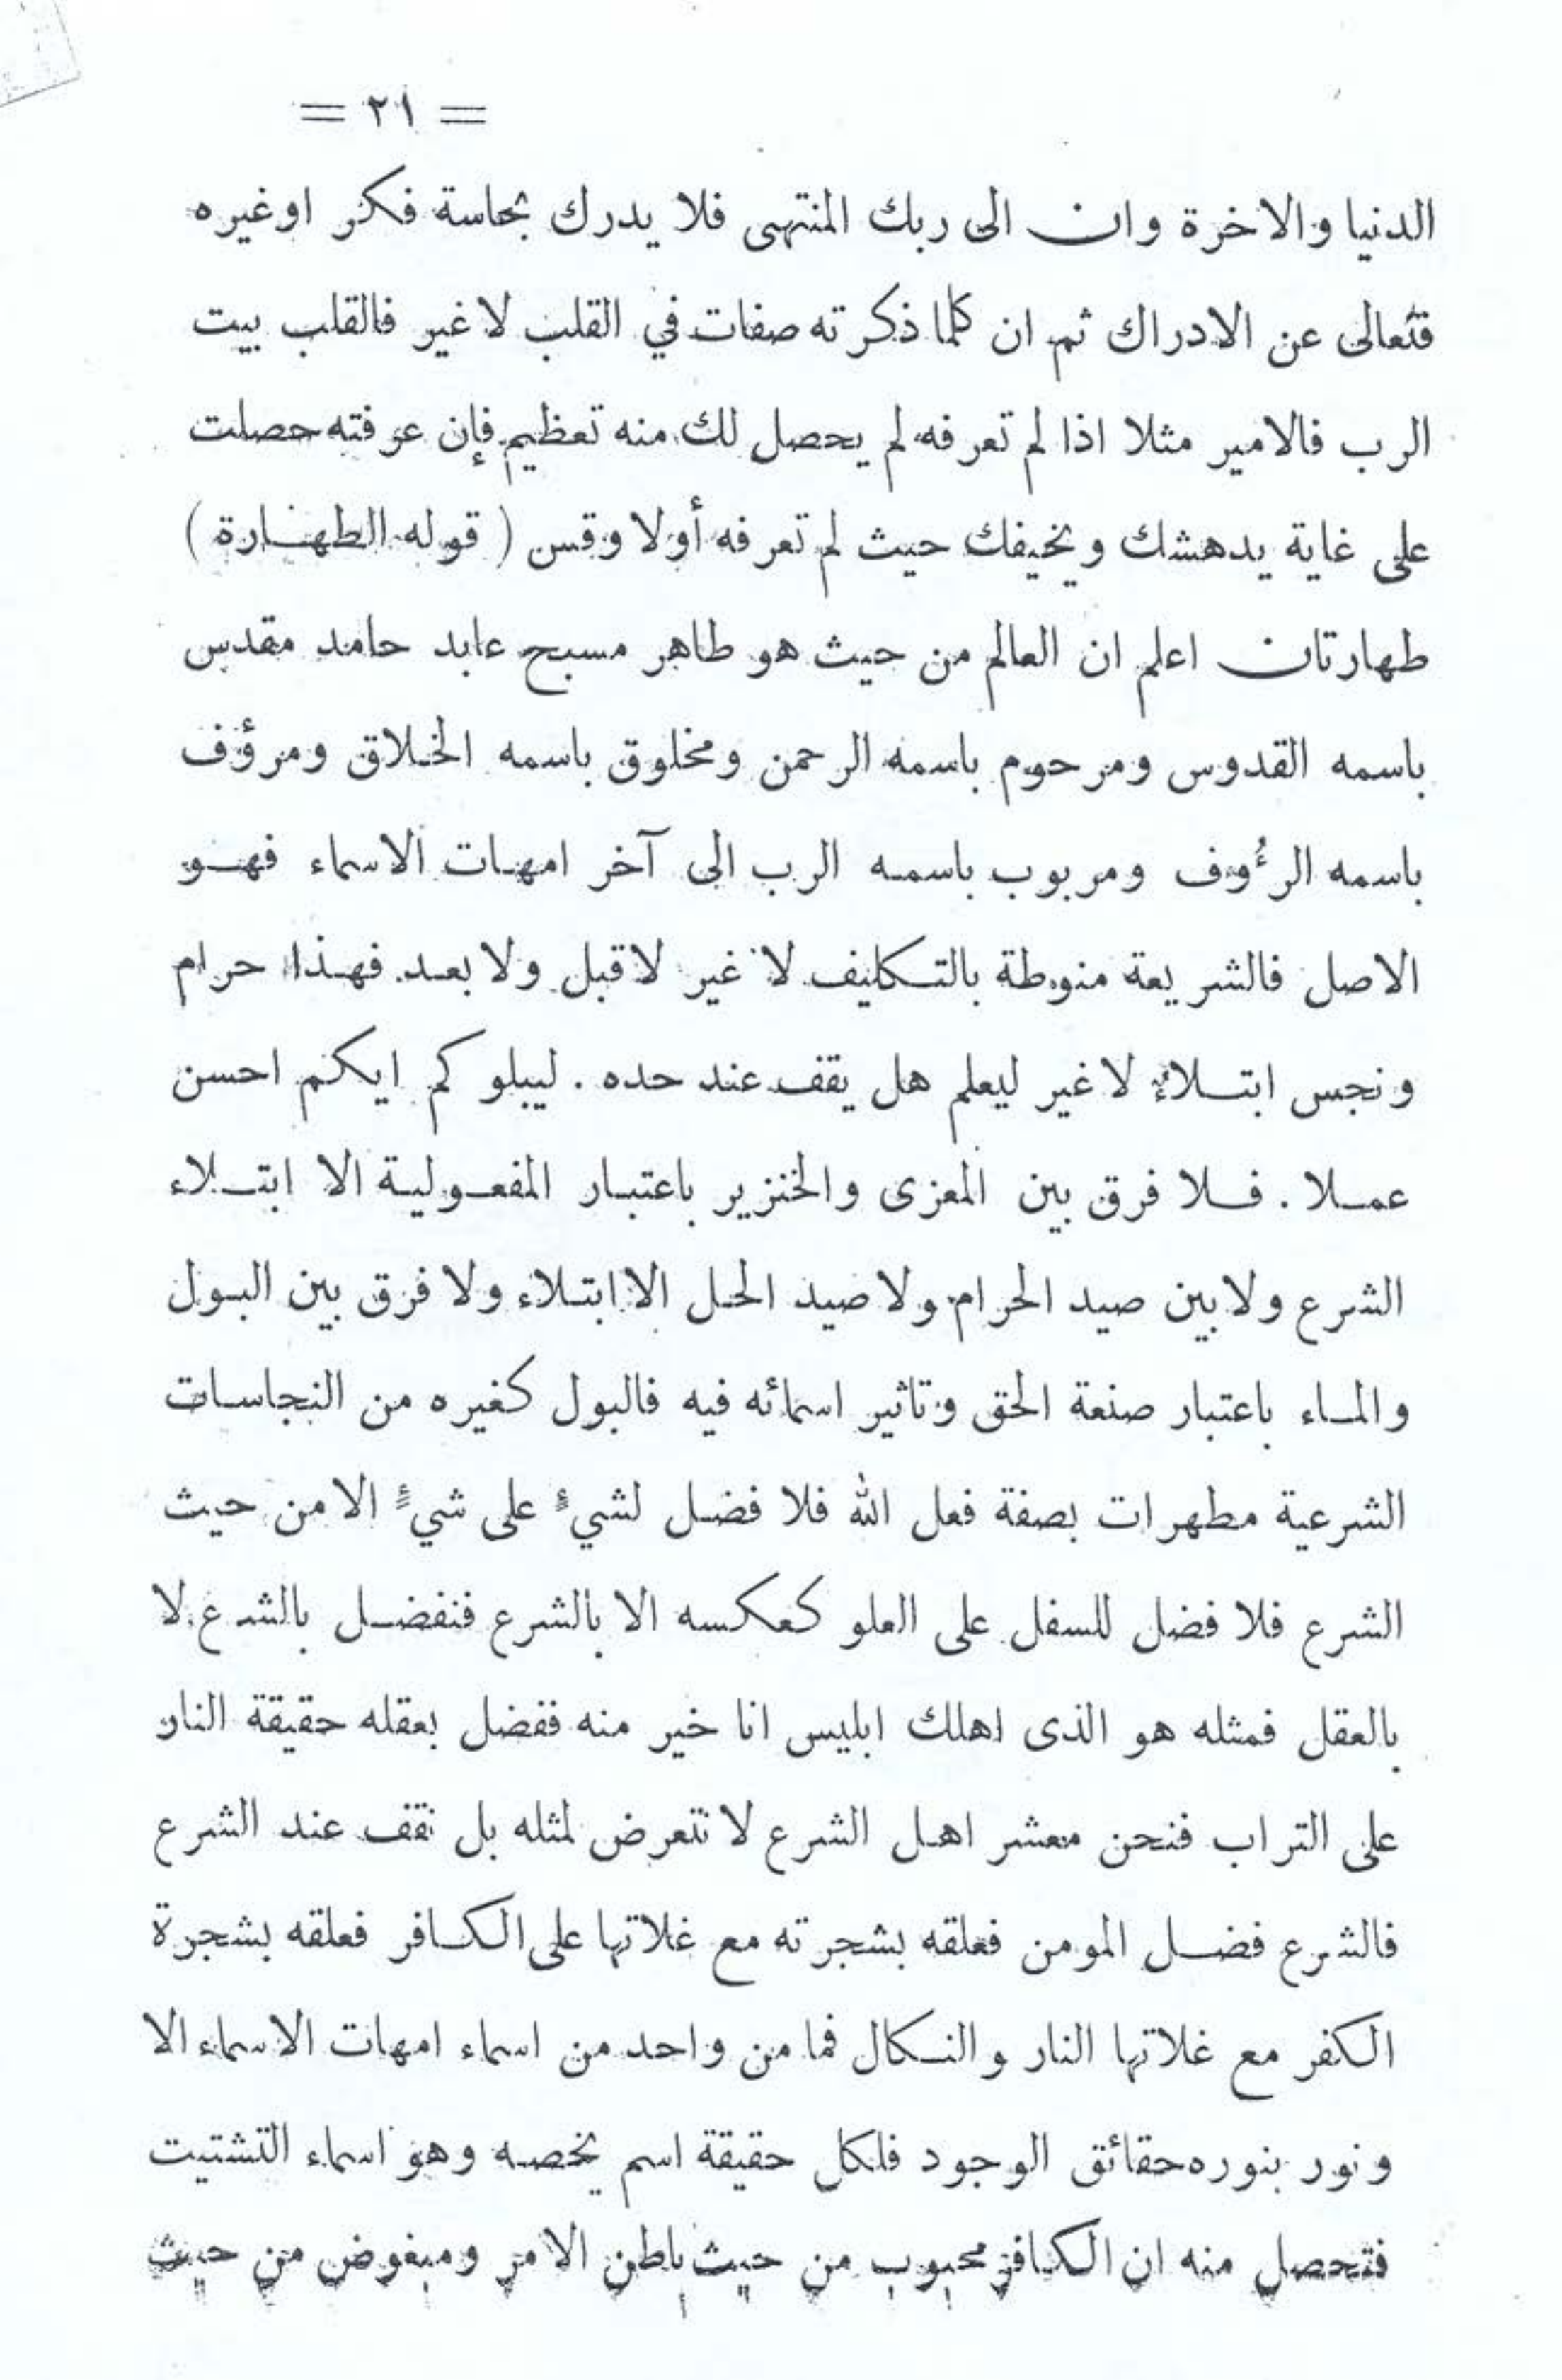 = ٢١ =
الدنيا والاخرة وان الى ربك المنتهى فلا يدرك بحاسة فكر اوغيره
فتعالى عن الادراك ثم ان كلما ذكرته صفات في القلب لا غير فالقلب بيت
الرب فالامير مثلا اذا لم تعرفه لم يحصل لك منه تعظيم فإن عرفته حصلت
على غاية يدهشك ويخيفك حيث لم تعرفه أولا وقس ( قوله الطهارة )
طهارتان اعلم ان العالم من حيث هو طاهر مسبح عابد حامد مقدس
باسمه القدوس ومرحوم باسمه الرحمن ومخلوق باسمه الخلاق ومرؤف
باسمه الرءُوف ومربوب باسمه الرب الى آخر امهات الاسماء فهو
الاصل فالشريعة منوطة بالتكليف لا غير لا قبل ولا بعد فهذا حرام
ونجس ابتلاءٌ لا غير ليعلم هل يقف عند حده . ليبلوكم ايكم احسن
عملا . فلا فرق بين المعزى والخنزير باعتبار المفعولية الا ابتلاء
الشرع ولا بين صيد الحرام ولا صيد الحل الا ابتلاء ولا فرق بين البول
والماء باعتبار صنعة الحق وتاثير اسمائه فيه فالبول كغيره من النجاسات
الشرعية مطهرات بصفة فعل الله فلا فضل لشيءٍ على شيءٍ الا من حيث
الشرع فلا فضل للسفل على العلو كعكسه الا بالشرع فنفضل بالشرع لا
بالعقل فمثله هو الذى اهلك ابليس انا خير منه ففضل بعقله حقيقة النار
على التراب فنحن معشر اهل الشرع لا نتعرض لمثله بل نقف عند الشرع
فالشرع فضل المومن فعلقه بشجرته مع غلاتها على الكافر فعلقه بشجرة
الكفر مع غلاتها النار والنكال فما من واحد من اسماء امهات الاسماء الا
ونور بنوره حقائق الوجود فلكل حقيقة اسم يخصه وهو اسماء التشتيت
فتحصل منه ان الكافر محبوب من حيث باطن الامر ومبغوض من حيث